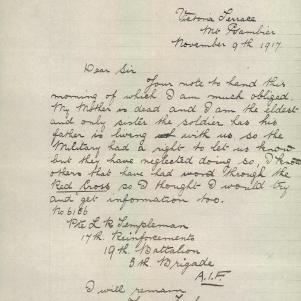 Victoria Terrace
Mt Gambier
November 9th 1917.
Dear Sir
Your note to hand this
morning of which I am much obliged.
My Mother is dead and I am the eldest
and only sister the soldier has his
father is living with us, so the
Military had a right to let us know
but they have neglected doing so, I know
others that have had word through the
Red Cross so I thought I would try
and get information too.
No 6166
Pte L R Templeman
17th Reinforcements
19th Battalion
5th Brigade
A.I.F.
I will remain